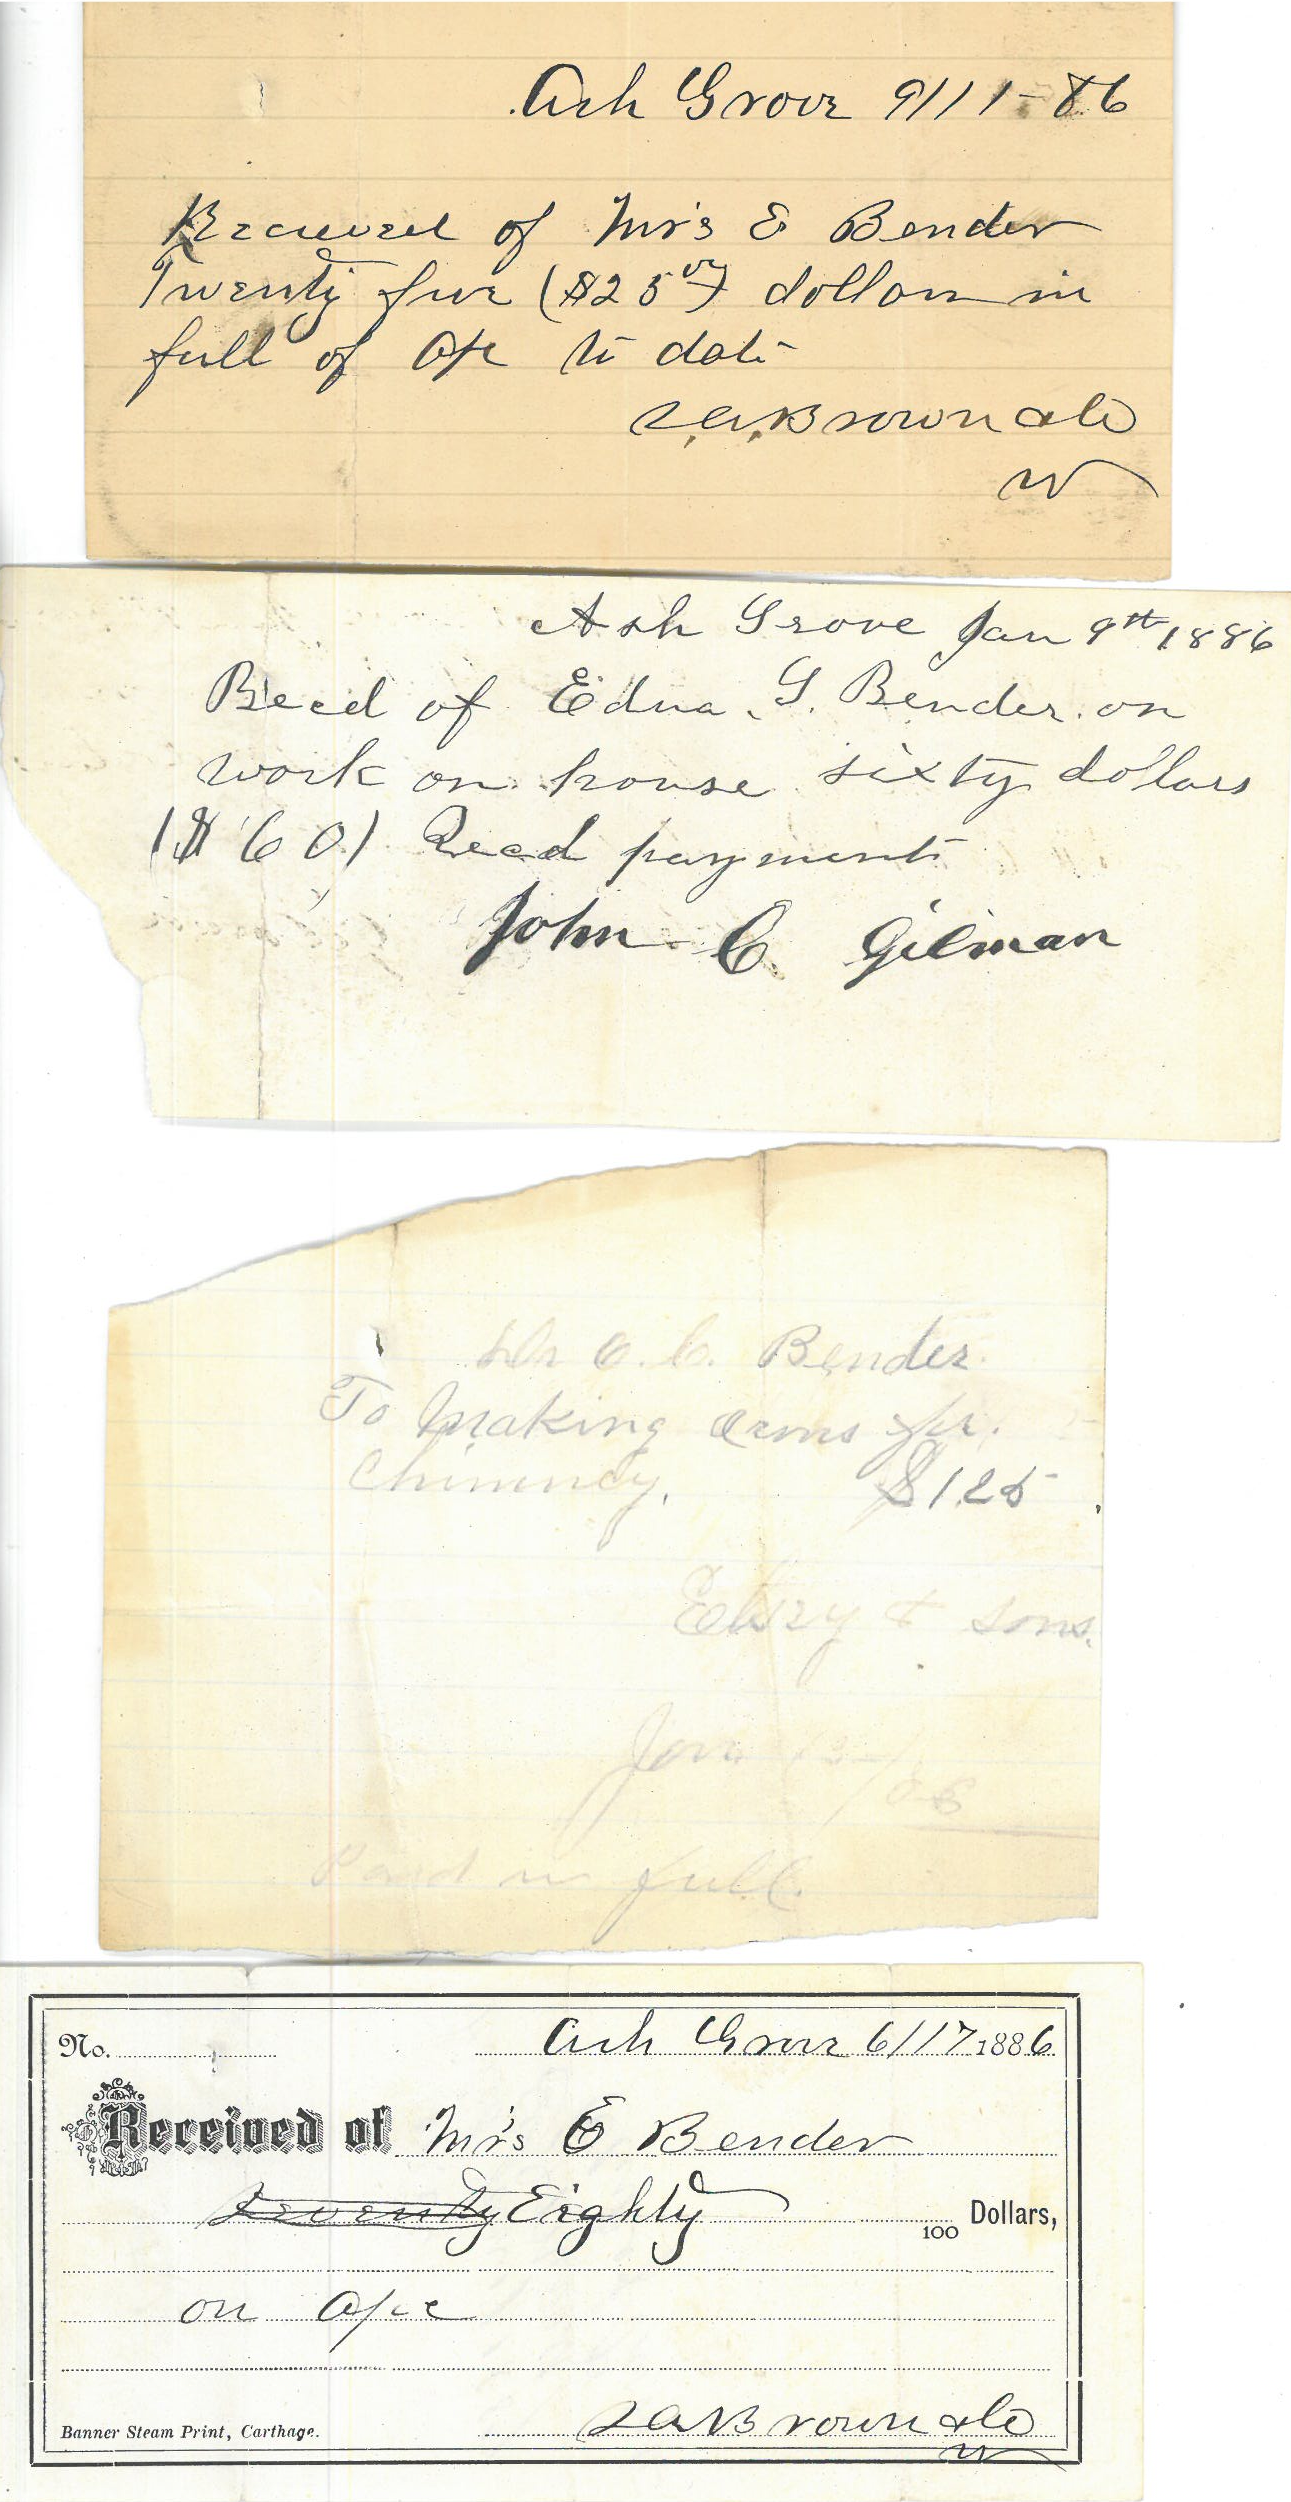 Ash Grove 9/11-86
Received of Mrs E Bender
Twenty five ($25 00) dollars in
full of a/c to date
S.A. Brown & Co
W
Ash Grove Jan 9th 1886
Recd of Edna. G. Bender. on
work on house sixty dollars
($60) Recd payment
John C. Gilman
C. C. Bender.
To Making arms for.
Chimney. $1.25
& Sons.
Jan
Paid in full.
No. Ash Grove 6/17 1886
Received of Mrs E Bender
Seventy Eighty 100 Dollars,
on a/c
Banner Steam Print, Carthage. S A Brown & Co
W